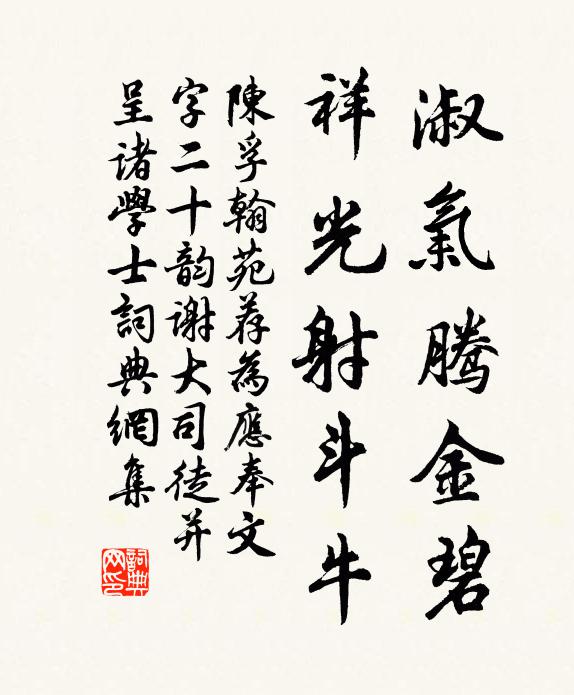 淑氣騰金碧
祥光射斗牛
陳孚翰苑荐為應奉文
字二十韵谢大司徒并
呈诸學士詞典網集
詞典網印